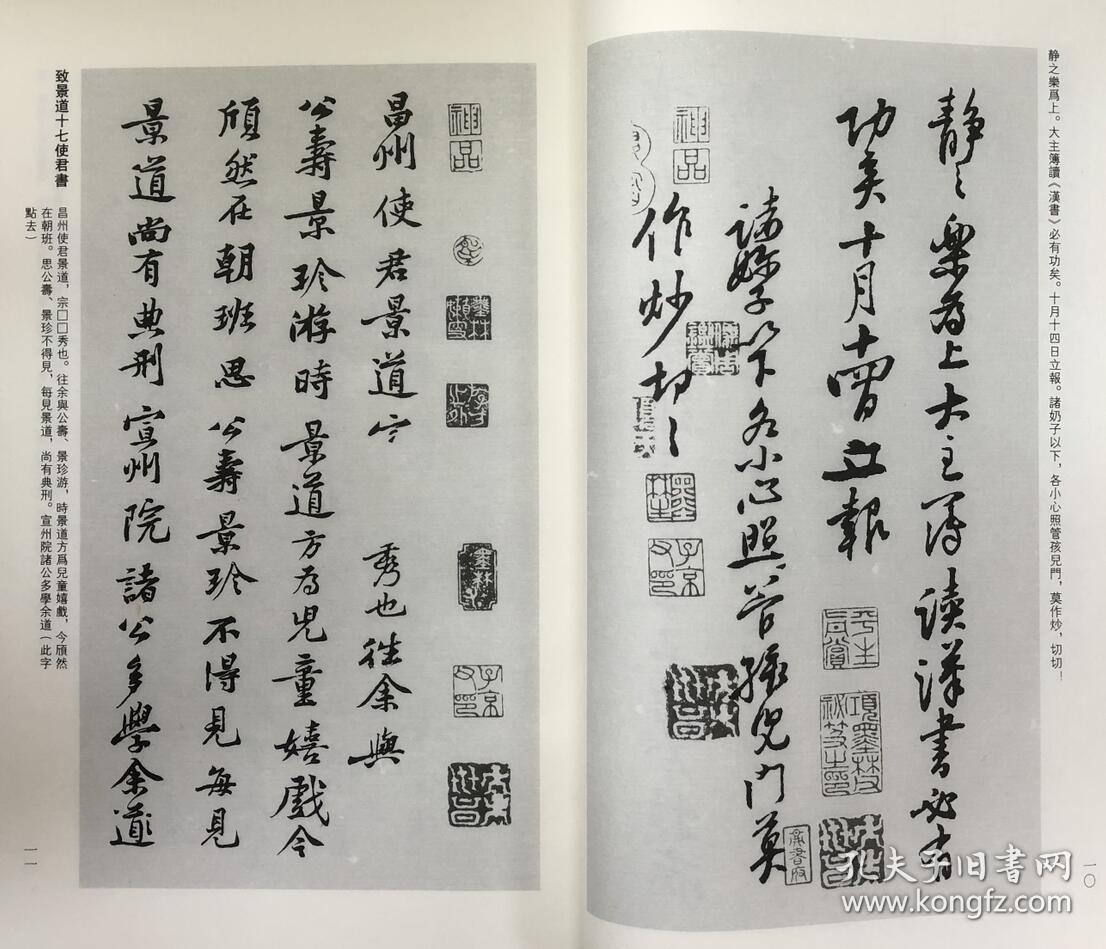 静之樂爲上。大主簿讀《漢書》必有功矣。十月十四日立報。諸奶子以下，各小心照管孩兒門，莫作炒，切切！
静〻樂為上大主簿读漢書必有
功矣十月十四日立報
諸妳子以下各小心照管孩兒門莫
作炒切〻
神品
子京
墨林
平生
真賞
項墨林父
祕笈之印
一〇
神品
子京
昌州使君景道宗
秀也往余與
公壽景珍游時景道方為兒童嬉戲今
頎然在朝班思公壽景珍不得見每見
景道尚有典刑宣州院諸公多學余道
致景道十七使君書
昌州使君景道，宗□□秀也。往余與公壽、景珍游，時景道方爲兒童嬉戲，今頎然
在朝班。思公壽、景珍不得見，每見景道，尚有典刑。宣州院諸公多學余道（此字
點去）
一一
孔夫子旧书网
www.kongfz.com